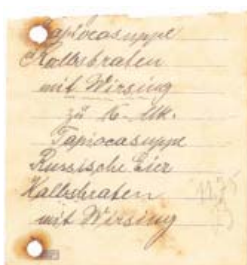 Tapiocasuppe
Kalbsbraten
mit Wirsing
zu 16.- Mk.
Tapiocasuppe
Russische Eier
Kalbsbraten
mit Wirsing